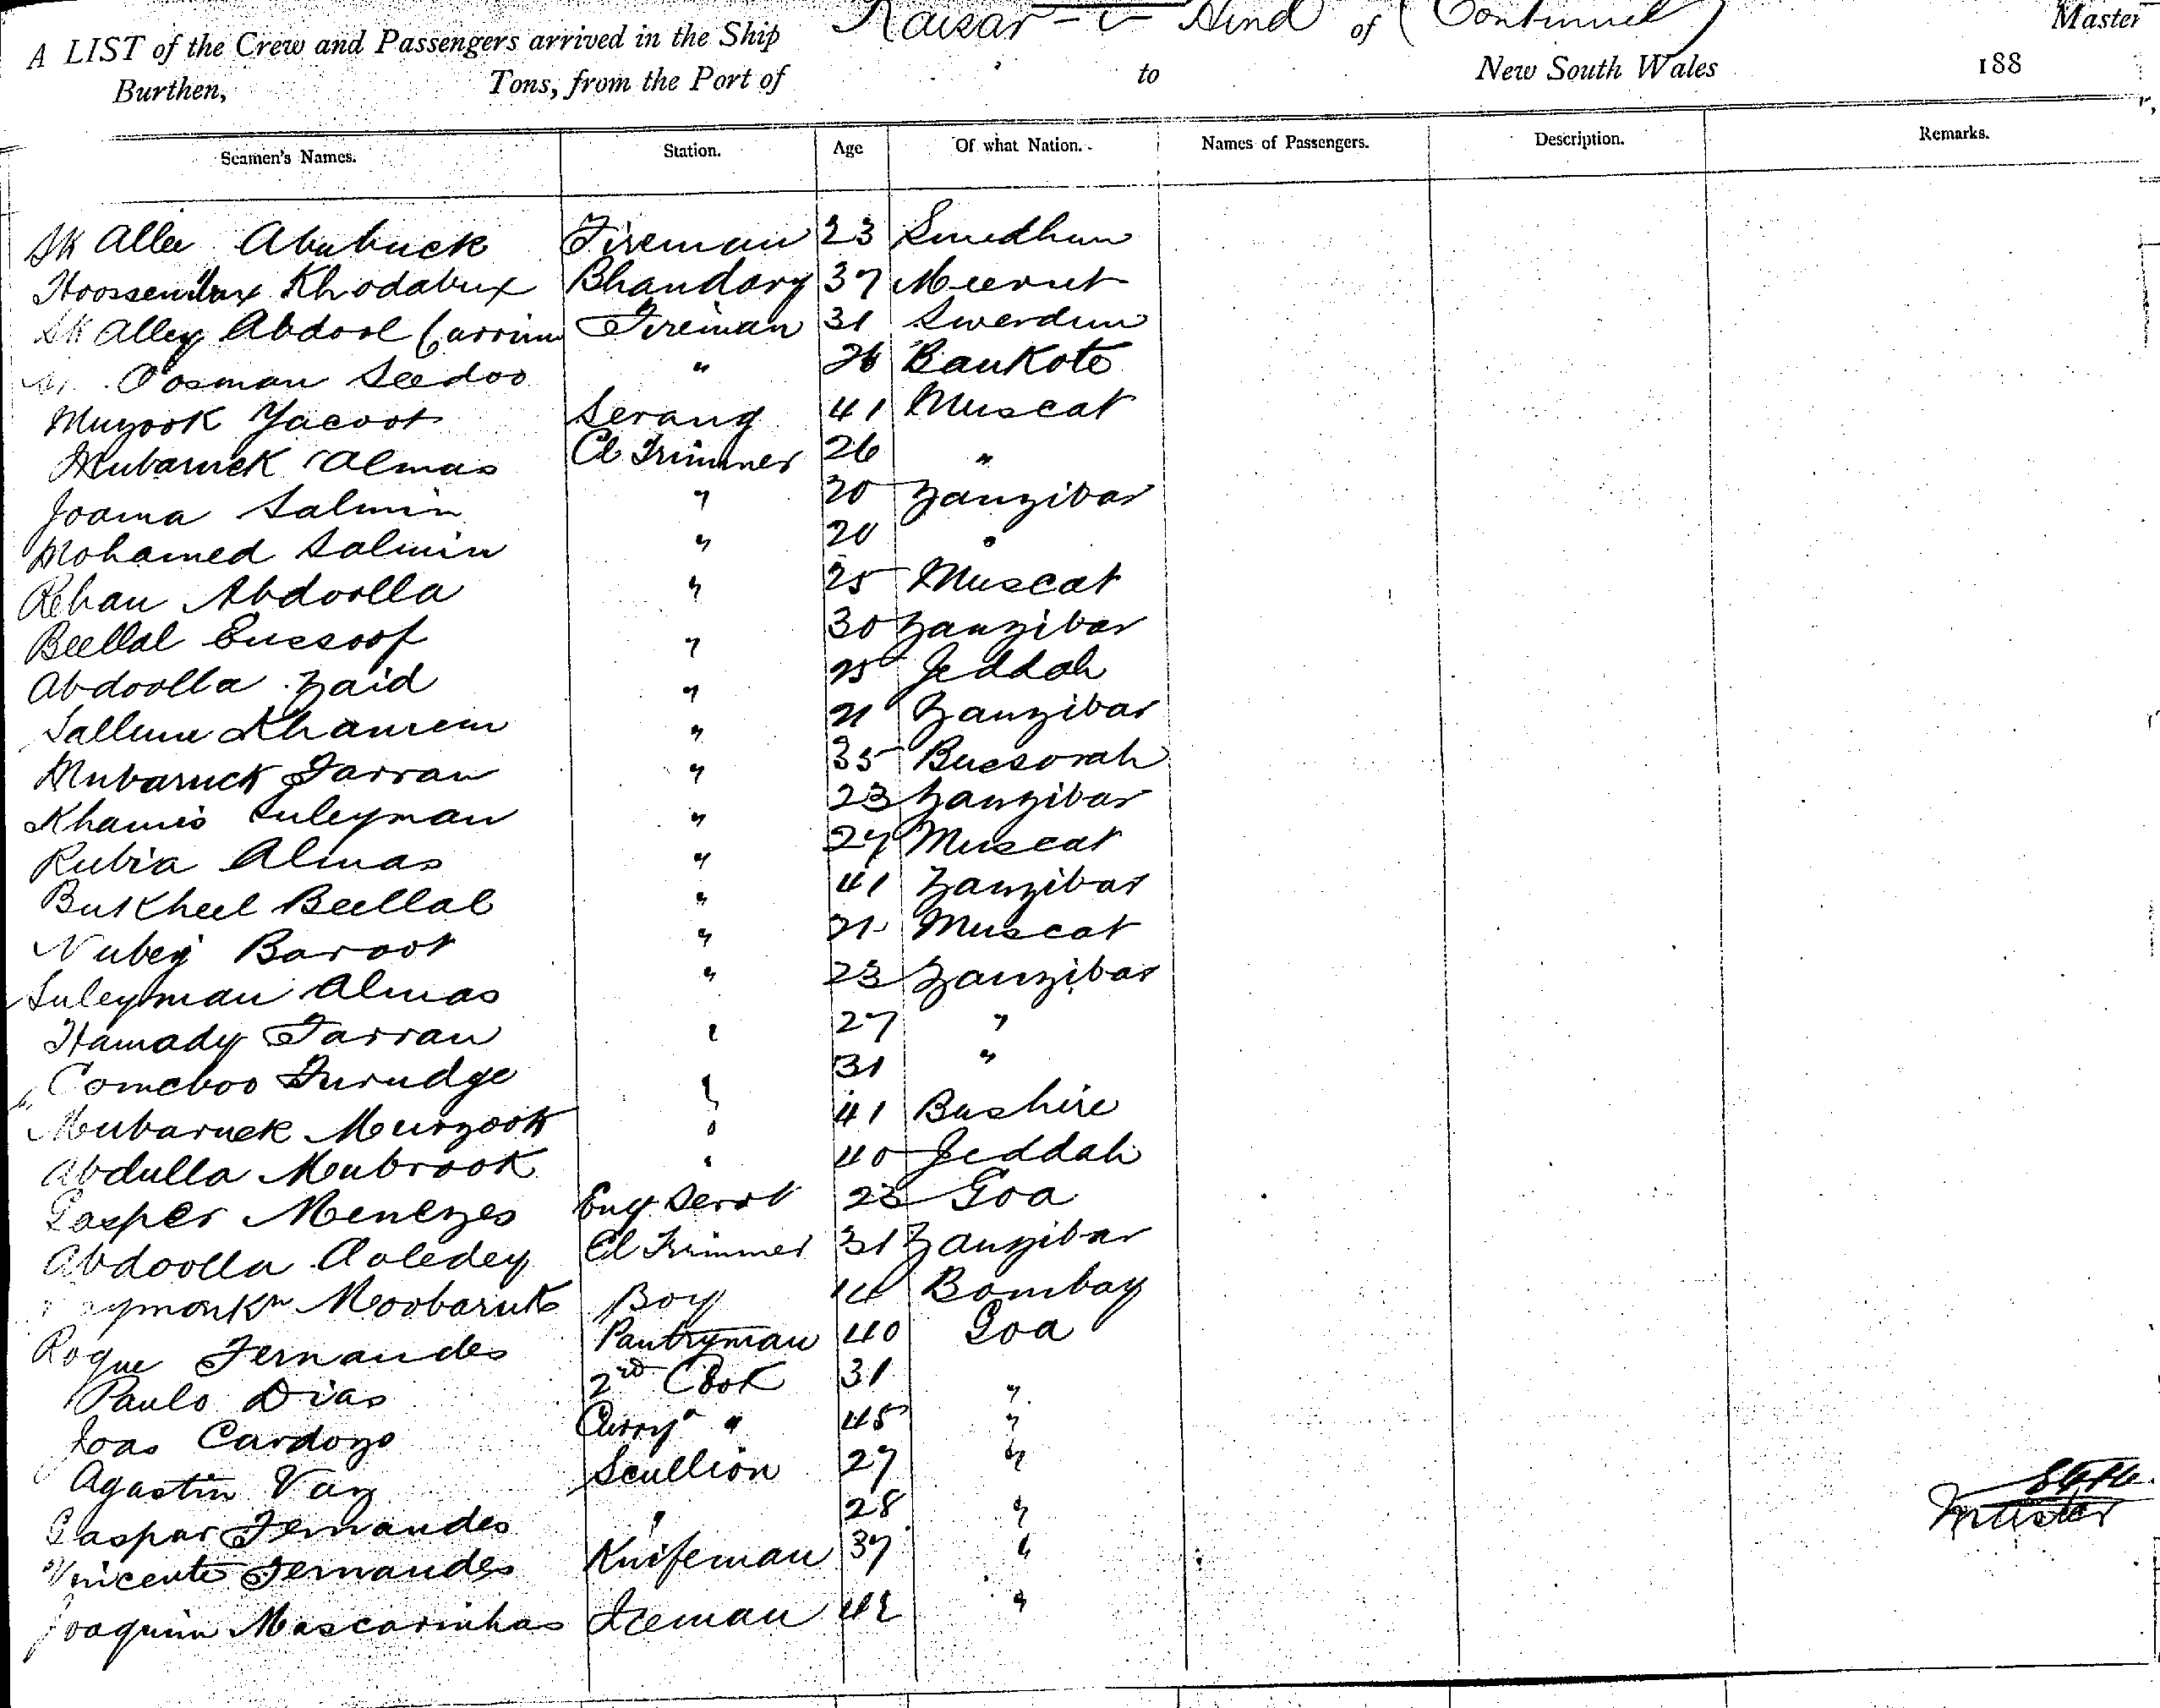 A LIST of the Crew and Passengers arrived in the Ship Kaisar-i-Hind of (Continued) Master
Burthen, Tons, from the Port of to New South Wales 188
Seamen's Names. Station. Age Of what Nation. Names of Passengers. Description. Remarks.
Sk Allee Abubuck Fireman 23
Hoossenbux Khodabux Bhandary 37 Meerut
Sk Alley Abdool Carrim Fireman 31
Oosman Seedoo " 26 Bankote
Muzook Yacoot Serang 41 Muscat
Mubaruck Almas Cl Trimmer 26 "
Jooma Salmin " 20 Zanzibar
Mohamed Salmin " 20 "
Rehan Abdoolla " 25 Muscat
Beellal Eussoof " 30 Zanzibar
Abdoolla Zaid " 25 Jeddah
Sallum " 21 Zanzibar
Mubaruck Farran " 35 Bussorah
Khamis Suleyman " 23 Zanzibar
Rubia Almas " 27 Muscat
Bukheel Beellal " 41 Zanzibar
Nubey Baroot " 21 Muscat
Suleyman Almas " 23 Zanzibar
Hamady Farran " 27 "
Comeboo Furudge " 31 "
Mubaruck Murzook " 41 Bushire
Abdulla Mubrook " 40 Jeddah
Gasper Menezes Eng Servt 23 Goa
Abdoolla Aoledey Cl Trimmer 31 Zanzibar
Moobaruk Boy 14 Bombay
Roque Fernandes Pantryman 40 Goa
Paulo Dias 2nd Cook 31 "
Joao Cardozo Curry " 45 "
Agastin Vaz Scullion 27 "
Gaspar Fernandes " 28 "
Vincente Fernandes Knifeman 37 "
Joaquim Mascarinhas Iceman 42 "